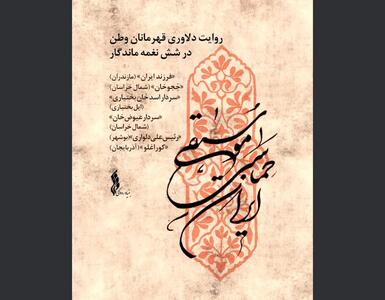 روایت دلاوری قهرمانان وطن
در شش نغمه ماندگار
«فرزند ایران» (مازندران)
«ججوخان» (شمال خراسان)
«سردار اسدخان بختیاری»
(ایل بختیاری)
«سردار عیوض‌خان»
(شمال خراسان)
«رئیس‌علی دلواری» (بوشهر)
«کوراغلو» (آذربایجان)
موسیقی
حماسی
ایران